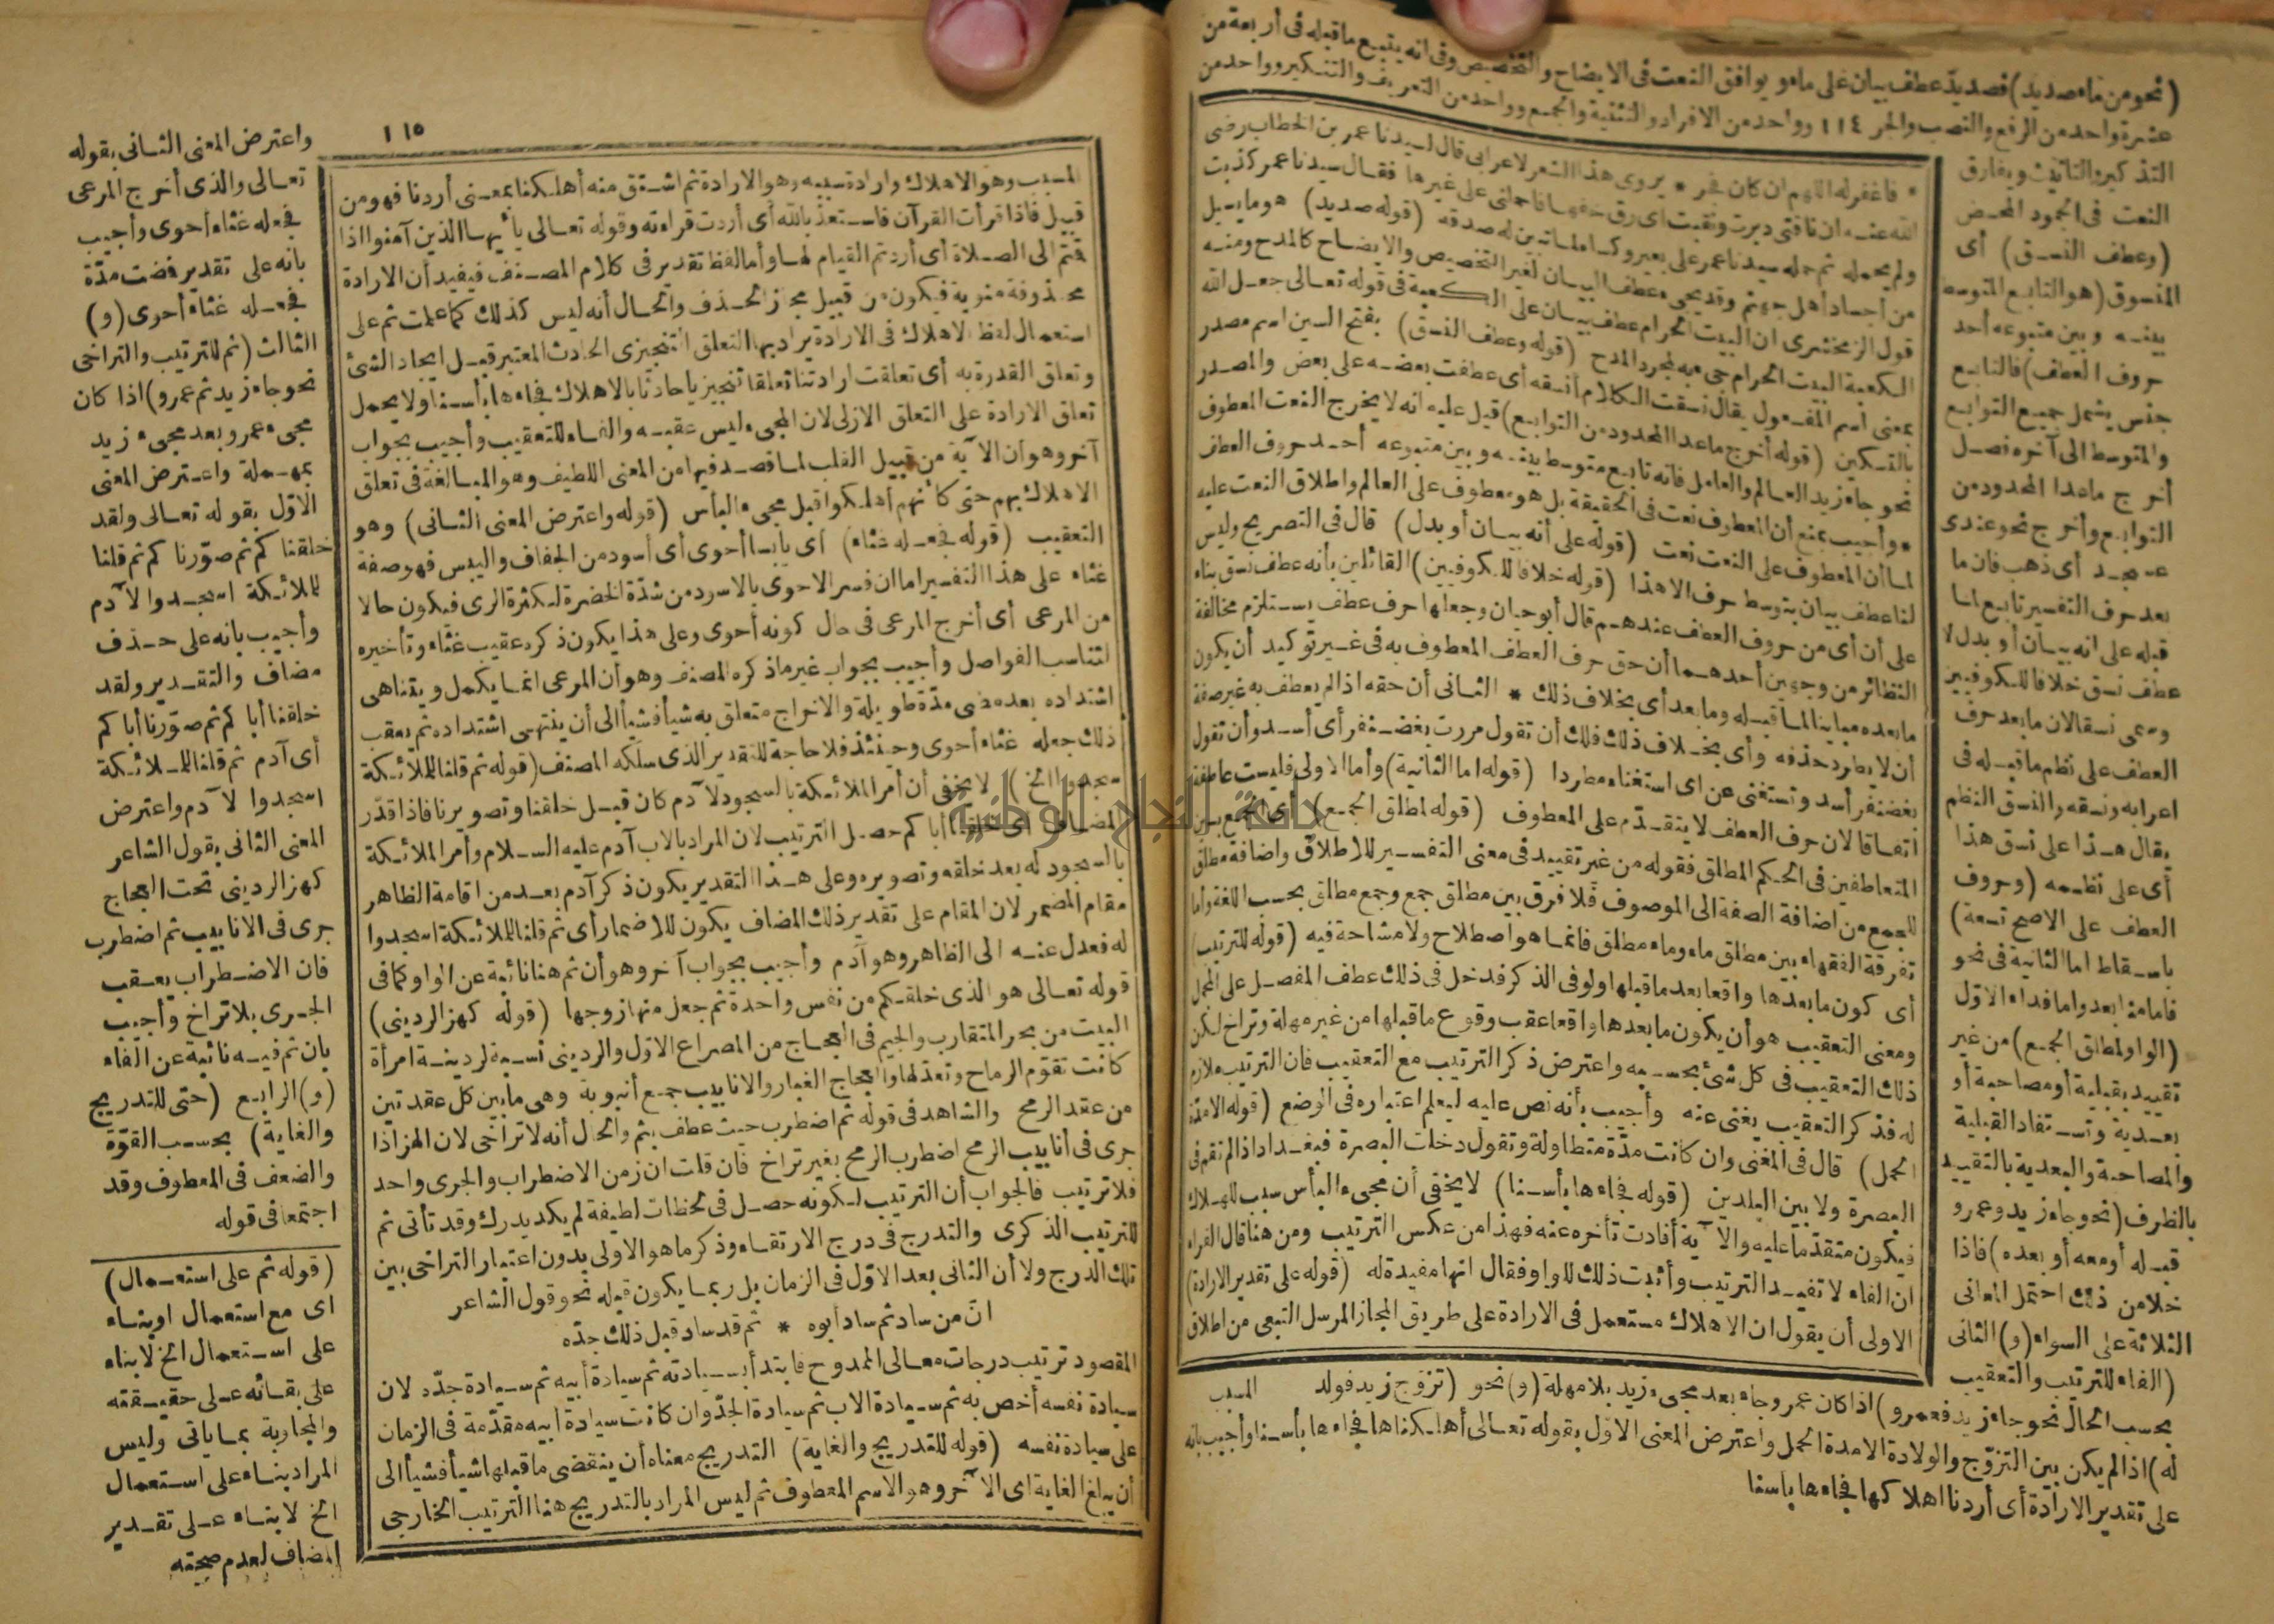 (نحو من ماء صديد) فصديد عطف بيان على ماء ويوافق النعت فى الايضاح والتخصيص وفى انه يتبع ما قبله فى أربعة من
عشرة واحد من الرفع والنصب والجر ١١٤ وواحد من الافراد والتثنية والجمع وواحد من التعريف والتنكير وواحد من
التذكير والتأنيث ويفارق
النعت فى الجمود المحض
(وعطف النسق) أى
المنسوق (هو التابع المتوسط
بينه وبين متبوعه أحد
حروف العطف) فالتابع
جنس يشمل جميع التوابع
والمتوسط الى آخره فصل
أخرج ماعدا المحدود من
التوابع وأخرج نحو عندى
عسجد أى ذهب فان ما
بعد حرف التفسير تابع لما
قبله على انه بيان أو بدل لا
عطف نسق خلافا للكوفيين
وسمى نسقا لان ما بعد حرف
العطف على نظم ما قبله فى
اعرابه ونسقه والنسق النظم
يقال هذا على نسق هذا
أى على نظمه (وحروف
العطف على الاصح تسعة)
باسقاط اما الثانية فى نحو
فاما منا بعد واما فداء الاول
(الواو لمطلق الجمع) من غير
تقييد بقبلية أو مصاحبة أو
بعدية وتستفاد القبلية
والمصاحبة والبعدية بالتقييد
بالظرف (نحو جاء زيد وعمرو
قبله أو معه أو بعده) فاذا
خلا من ذلك احتمل المعانى
الثلاثة على السواء (و) الثانى
(الفاء للترتيب والتعقيب
بحسب الحال نحو جاء زيد فعمرو) اذا كان عمرو جاء بعد مجىء زيد بلا مهلة (و) نحو (تزوج زيد فولد
له) اذا لم يكن بين التزوج والولادة الا مدة الحمل واعترض المعنى الاول بقوله تعالى أهلكناها فجاءها بأسنا وأجيب بانه
على تقدير الارادة أى أردنا اهلاكها فجاءها بأسنا
* فاغفر له اللهم ان كان فجر * يروى هذا الشعر لاعرابى قال لسيدنا عمر بن الخطاب رضى
الله عنه ان ناقتى دبرت ونقبت أى رق خفها فاحملنى على غيرها فقال سيدنا عمر كذبت
ولم يحمله ثم حمله سيدنا عمر على بعير وكساه لما تبين له صدقه (قوله صديد) هو ما يسيل
من أجساد أهل جهنم وقد يجىء عطف البيان لغير التخصيص والايضاح كالمدح ومنه
قول الزمخشرى ان البيت الحرام عطف بيان على الكعبة فى قوله تعالى جعل الله
الكعبة البيت الحرام جىء به لمجرد المدح (قوله وعطف النسق) بفتح السين اسم مصدر
بمعنى اسم المفعول يقال نسقت الكلام أنسقه أى عطفت بعضه على بعض والمصدر
بالتسكين (قوله أخرج ماعدا المحدود من التوابع) قيل عليه انه لا يخرج النعت المعطوف
نحو جاء زيد العالم والعامل فانه تابع متوسط بينه وبين متبوعه أحد حروف العطف
* وأجيب بمنع أن المعطوف نعت فى الحقيقة بل هو معطوف على العالم واطلاق النعت عليه
لما أن المعطوف على النعت نعت (قوله على أنه بيان أو بدل) قال فى التصريح وليس
لنا عطف بيان بتوسط حرف الا هذا (قوله خلافا للكوفيين) القائلين بأنه عطف نسق بناء
على أن أى من حروف العطف عندهم قال أبو حيان وجعلها حرف عطف يستلزم مخالفة
النظائر من وجهين أحدهما أن حق حرف العطف المعطوف به فى غير توكيد أن يكون
ما بعده مباينا لما قبله وما بعد أى بخلاف ذلك * الثانى أن حقه اذا لم يعطف به غير صفة
أن لا يطرد حذفه وأى بخلاف ذلك فلك أن تقول مررت بغضنفر أى أسد وأن تقول
بغضنفر أسد وتستغنى عن اى استغناء مطردا (قوله اما الثانية) وأما الاولى فليست عاطفة
اتفاقا لان حرف العطف لا يتقدم على المعطوف (قوله لمطلق الجمع) أى لجمع بين
المتعاطفين فى الحكم المطلق فقوله من غير تقييد فى معنى التفسير للاطلاق واضافة مطلق
للجمع من اضافة الصفة الى الموصوف فلا فرق بين مطلق جمع وجمع مطلق بحسب اللغة وأما
تفرقة الفقهاء بين مطلق ماء وماء مطلق فانما هو اصطلاح ولا مشاحة فيه (قوله للترتيب)
أى كون ما بعدها واقعا بعد ما قبلها ولو فى الذكر فدخل فى ذلك عطف المفصل على المجمل
ومعنى التعقيب هو أن يكون ما بعدها واقعا عقب وقوع ما قبلها من غير مهلة وتراخ لكن
ذلك التعقيب فى كل شئ بحسبه واعترض ذكر الترتيب مع التعقيب فان الترتيب ملازم
له فذكر التعقيب يغنى عنه وأجيب بأنه نص عليه ليعلم اعتباره فى الوضع (قوله الا مدة
الحمل) قال فى المغنى وان كانت مدة متطاولة وتقول دخلت البصرة فبغداد اذا لم تقم فى
البصرة ولا بين البلدين (قوله فجاءها بأسنا) لا يخفى أن مجىء البأس سبب للهلاك
فيكون متقدما عليه والآية أفادت تأخره عنه فهذا من عكس الترتيب ومن هنا قال الفراء
ان الفاء لا تفيد الترتيب وأثبت ذلك للواو فقال انها مفيدة له (قوله على تقدير الارادة)
الاولى أن يقول ان الاهلاك مستعمل فى الارادة على طريق المجاز المرسل التبعى من اطلاق
المسبب
١١٥
المسبب وهو الاهلاك وارادة سببه وهو الارادة ثم اشتق منه أهلكنا بمعنى أردنا فهو من
قبيل فاذا قرأت القرآن فاستعذ بالله أى أردت قراءته وقوله تعالى يا أيها الذين آمنوا اذا
قمتم الى الصلاة أى أردتم القيام لها وأما لفظ تقدير فى كلام المصنف فيفيد أن الارادة
محذوفة منوية فيكون من قبيل مجاز الحذف والحال أنه ليس كذلك كما علمت ثم على
استعمال لفظ الاهلاك فى الارادة يراد بها التعلق التنجيزى الحادث المعتبر قبل ايجاد الشئ
وتعلق القدرة به أى تعلقت ارادتنا تعلقا تنجيزيا حادثا بالاهلاك فجاءها بأسنا ولا يحمل
تعلق الارادة على التعلق الازلى لان المجىء ليس عقبه والفاء للتعقيب وأجيب بجواب
آخر وهو أن الآية من قبيل القلب لما قصد فيها من المعنى اللطيف وهو المبالغة فى تعلق
الاهلاك بهم حتى كأنهم أهلكوا قبل مجىء البأس (قوله واعترض المعنى الثانى) وهو
التعقيب (قوله فجعله غثاء) أى يابسا أحوى أى أسود من الجفاف واليبس فهو صفة
غثاء على هذا التفسير اما ان فسر الاحوى بالاسود من شدة الخضرة لكثرة الرى فيكون حالا
من المرعى أى أخرج المرعى فى حال كونه أحوى وعلى هذا يكون ذكره عقيب غثاء وتأخيره
لتناسب الفواصل وأجيب بجواب غير ما ذكره المصنف وهو أن المرعى انما يكمل ويتناهى
اشتداده بعد مضى مدة طويلة والاخراج متعلق به شيأ فشيأ الى أن ينتهى اشتداده ثم يعقب
ذلك جعله غثاء أحوى وحينئذ فلا حاجة للتقدير الذى سلكه المصنف (قوله ثم قلنا للملائكة
اسجدوا الخ) لا يخفى أن أمر الملائكة بالسجود لآدم كان قبل خلقنا وتصويرنا فاذا قدر
المضاف أى خلقنا أباكم حصل الترتيب لان المراد بالاب آدم عليه السلام وأمر الملائكة
بالسجود له بعد خلقه وتصويره وعلى هذا التقدير يكون ذكر آدم بعد من اقامة الظاهر
مقام المضمر لان المقام على تقدير ذلك المضاف يكون للاضمار أى ثم قلنا للملائكة اسجدوا
له فعدل عنه الى الظاهر وهو آدم وأجيب بجواب آخر وهو أن ثم هنا نائبة عن الواو كما فى
قوله تعالى هو الذى خلقكم من نفس واحدة ثم جعل منها زوجها (قوله كهز الردينى)
البيت من بحر المتقارب والجيم فى العجاج من المصراع الاول والردينى نسبة لردينة امرأة
كانت تقوم الرماح وتعدلها والعجاج الغبار والانابيب جمع أنبوبة وهى ما بين كل عقدتين
من عقد الرمح والشاهد فى قوله ثم اضطرب حيث عطف بثم والحال أنه لا تراخى لان الهز اذا
جرى فى أنابيب الرمح اضطرب الرمح بغير تراخ فان قلت ان زمن الاضطراب والجرى واحد
فلا ترتيب فالجواب أن الترتيب لكونه حصل فى لحظات لطيفة لم يكد يدرك وقد تأتى ثم
للترتيب الذكرى والتدرج فى درج الارتقاء وذكر ما هو الاولى بدون اعتبار التراخى بين
تلك الدرج ولا أن الثانى بعد الاول فى الزمان بل ربما يكون قبله نحو قول الشاعر
ان من ساد ثم ساد أبوه * ثم قد ساد قبل ذلك جده
المقصود ترتيب درجات معالى الممدوح فابتدأ بسيادته ثم سيادة أبيه ثم سيادة جده لان
سيادة نفسه أخص به ثم سيادة الاب ثم سيادة الجد وان كانت سيادة أبيه مقدمة فى الزمان
على سيادة نفسه (قوله للتدريج والغاية) التدريج معناه أن ينقضى ما قبلها شيأ فشيأ الى
أن يبلغ الغاية اى الآخر وهو الاسم المعطوف ثم ليس المراد بالتدريج هنا الترتيب الخارجى
واعترض المعنى الثانى بقوله
تعالى والذى أخرج المرعى
فجعله غثاء أحوى وأجيب
بانه على تقدير فمضت مدة
فجعله غثاء أحوى (و)
الثالث (ثم للترتيب والتراخى
نحو جاء زيد ثم عمرو) اذا كان
مجىء عمرو بعد مجىء زيد
بمهملة واعترض المعنى
الاول بقوله تعالى ولقد
خلقناكم ثم صورناكم ثم قلنا
للملائكة اسجدوا لآدم
وأجيب بانه على حذف
مضاف والتقدير ولقد
خلقنا أباكم ثم صورنا أباكم
أى آدم ثم قلنا للملائكة
اسجدوا لآدم واعترض
المعنى الثانى بقول الشاعر
كهز الردينى تحت العجاج
جرى فى الانابيب ثم اضطرب
فان الاضطراب يعقب
الجرى بلا تراخ وأجيب
بان ثم فيه نائبة عن الفاء
(و) الرابع (حتى للتدريج
والغاية) بحسب القوة
والضعف فى المعطوف وقد
اجتمعا فى قوله
(قوله ثم على استعمال)
اى مع استعمال او بناء
على استعمال الخ لا بناء
على بقائه على حقيقته
والمجاوبة بما ياتى وليس
المراد بناء على استعمال
الخ لا بناء على تقدير
المضاف لعدم صحته
جامعة النجاح الوطنية